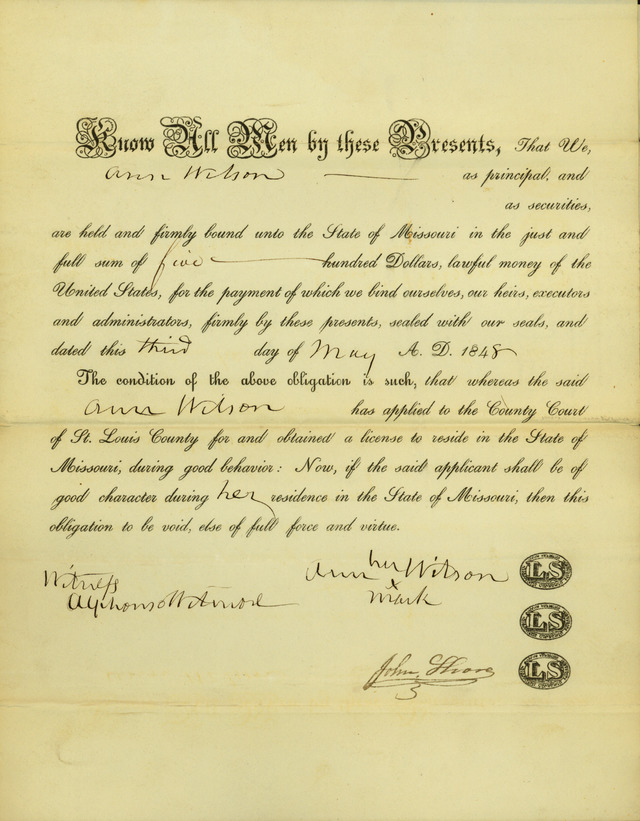 Know All Men by these Presents, That We,
Ann Wilson as principal, and
as securities,
are held and firmly bound unto the State of Missouri in the just and
full sum of five hundred Dollars, lawful money of the
United States, for the payment of which we bind ourselves, our heirs, executors
and administrators, firmly by these presents, sealed with our seals, and
dated this third day of May A. D. 1848
The condition of the above obligation is such, that whereas the said
Ann Wilson has applied to the County Court
of St. Louis County for and obtained a license to reside in the State of
Missouri, during good behavior: Now, if the said applicant shall be of
good character during her residence in the State of Missouri, then this
obligation to be void, else of full force and virtue.
Ann her Wilson LS
x
mark
Witness
Alphonso Wetmore
LS
John LS